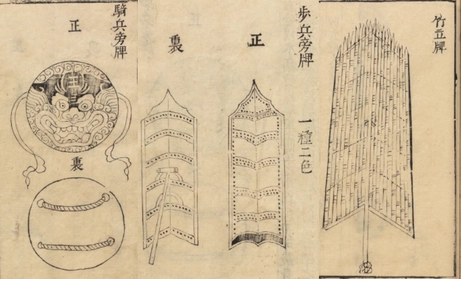 竹立牌
步兵旁牌
一種二色
正
裏
騎兵旁牌
正
裏